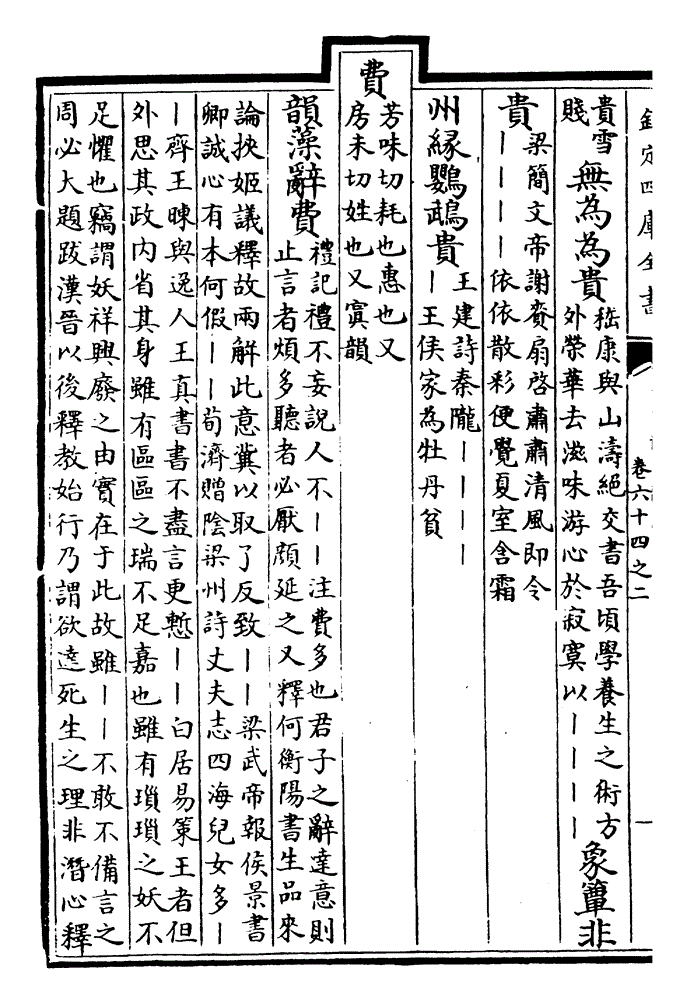 欽定四庫全書
卷六十四之二
一
貴雪
賤
無為為貴
嵇康與山濤絕交書吾頃學養生之術方
外榮華去滋味游心於寂寞以丨丨丨丨
象簟非
貴
梁簡文帝謝賚扇啓肅肅清風即令
丨丨丨丨依依散彩便覺夏室含霜
州緣鸚鵡貴
王建詩秦隴丨丨丨丨
丨王侯家為牡丹貧
費
芳味切耗也惠也又
房未切姓也又寘韻
韻藻辭費
禮記禮不妄說人不丨丨注費多也君子之辭達意則
止言者煩多聽者必厭顔延之又釋何衡陽書生品來
論挾姬議釋故兩解此意冀以取了反致丨丨梁武帝報侯景書
卿誠心有本何假丨丨荀濟贈陰梁州詩丈夫志四海兒女多丨
丨齊王暕與逸人王真書書不盡言更慙丨丨白居易策王者但
外思其政内省其身雖有區區之瑞不足嘉也雖有瑣瑣之妖不
足懼也竊謂妖祥興廢之由實在于此故雖丨丨不敢不備言之
周必大題跋漢晉以後釋教始行乃謂欲達死生之理非潛心釋